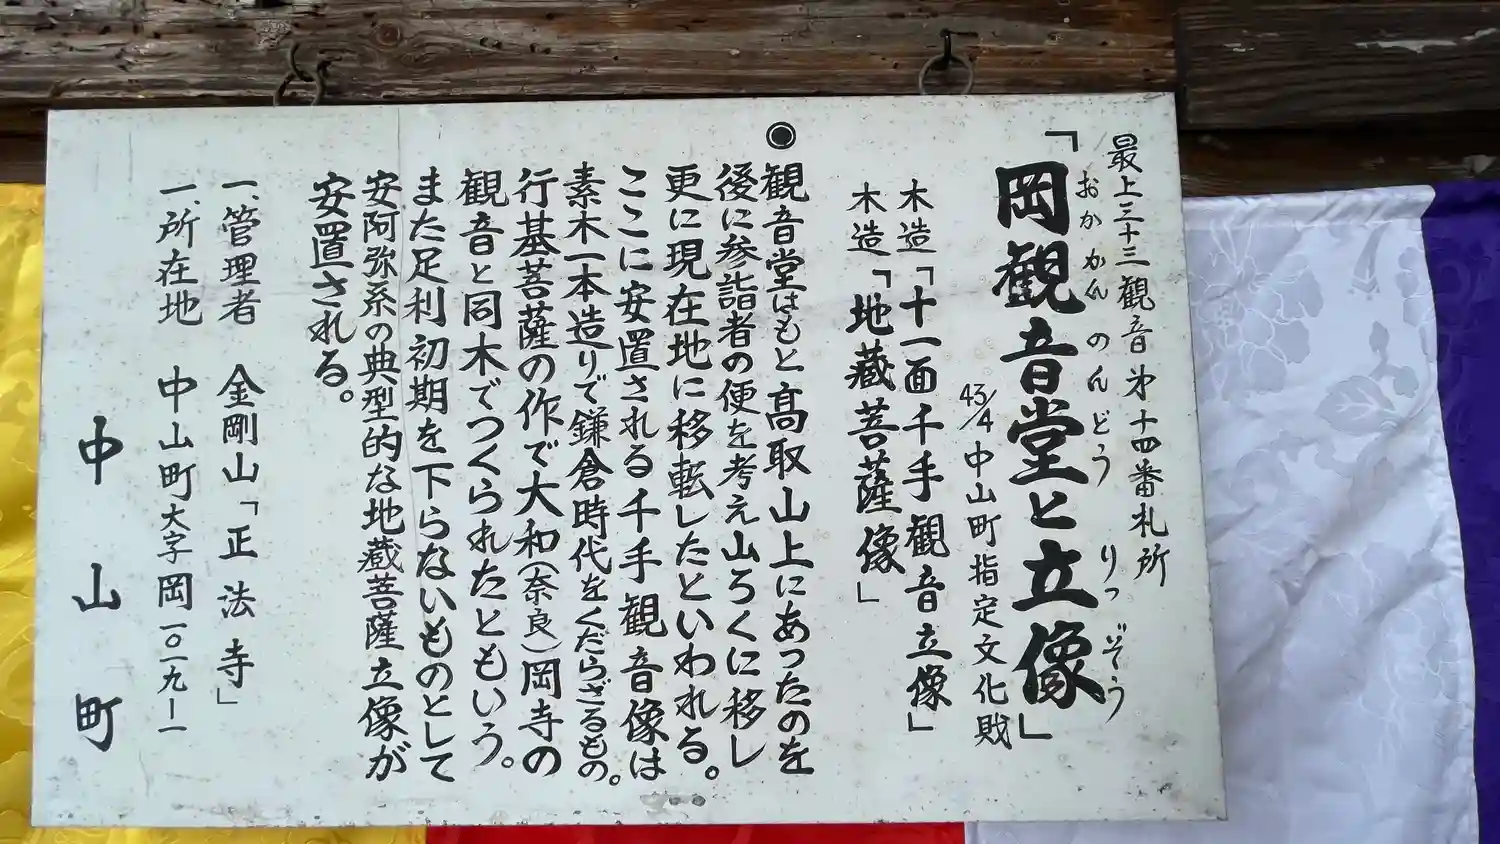 最上三十三観音第十四番札所
「岡観音堂と立像」
おかかんのんどう りつぞう
43/4 中山町指定文化財
木造「十一面千手観音立像」
木造「地蔵菩薩像」
◉観音堂はもと高取山上にあったのを
後に参詣者の便を考え山ろくに移し
更に現在地に移転したといわれる。
ここに安置される千手観音像は
素木一本造りで鎌倉時代をくだらざるもの。
行基菩薩の作で大和(奈良)岡寺の
観音と同木でつくられたともいう。
また足利初期を下らないものとして
安阿弥系の典型的な地蔵菩薩立像が
安置される。
一、管理者 金剛山「正法寺」
一、所在地 中山町大字岡一〇一九ー一
中山町